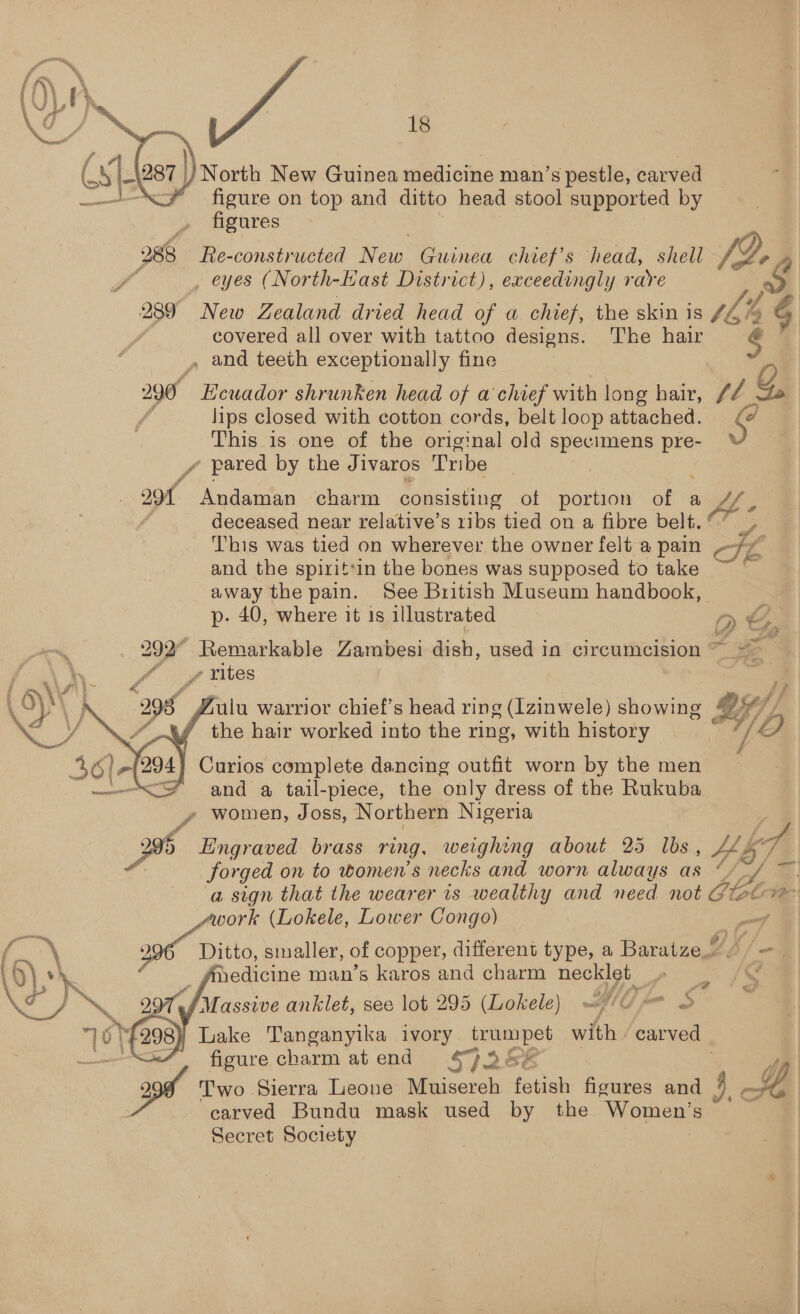 18
287 North New Guinea medicine man's pestle, carved
figure on top and ditto head stool supported by
figures
288 Re-constructed New Guinea chief's head, shell
eyes (North-East District), exceedingly rare
289 New Zealand dried head of a chief, the skin is
covered all over with tattoo designs. The hair
and teeth exceptionally fine
290 Ecuador shrunken head of a chief with long hair,
lips closed with cotton cords, belt loop attached.
This is one of the original old specimens pre-
pared by the Jivaros Tribe
291 Andaman charm consisting of portion of a
deceased near relative's ribs tied on a fibre belt.
This was tied on wherever the owner felt a pain
and the spirit in the bones was supposed to take
away the pain. See British Museum handbook,
p. 40, where it is illustrated
292 Remarkable Zambesi dish, used in circumcision
rites
293 Zulu warrior chief's head ring (Izinwele) showing
the hair worked into the ring, with history
36 294 Curios complete dancing outfit worn by the men
and a tail-piece, the only dress of the Rukuba
women, Joss, Northern Nigeria
295 Engraved brass ring, weighing about 25 lbs,
forged on to women's necks and worn always as
a sign that the wearer is wealthy and need not
work (Lokele, Lower Congo)
296 Ditto, smaller, of copper, different type, a Baratze
medicine man's karos and charm necklet
297 Massive anklet, see lot 295 (Lokele)
298 Lake Tanganyika ivory trumpet with carved
figure charm at end
299 Two Sierra Leone Muisereh fetish figures and
carved Bundu mask used by the Women's
Secret Society